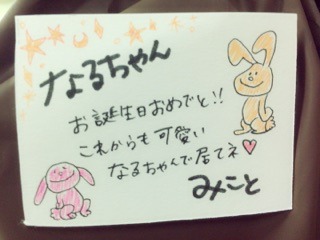 なるちゃん
お誕生日おめでと!!
これからも可愛い
なるちゃんで居てネ♥
みこと